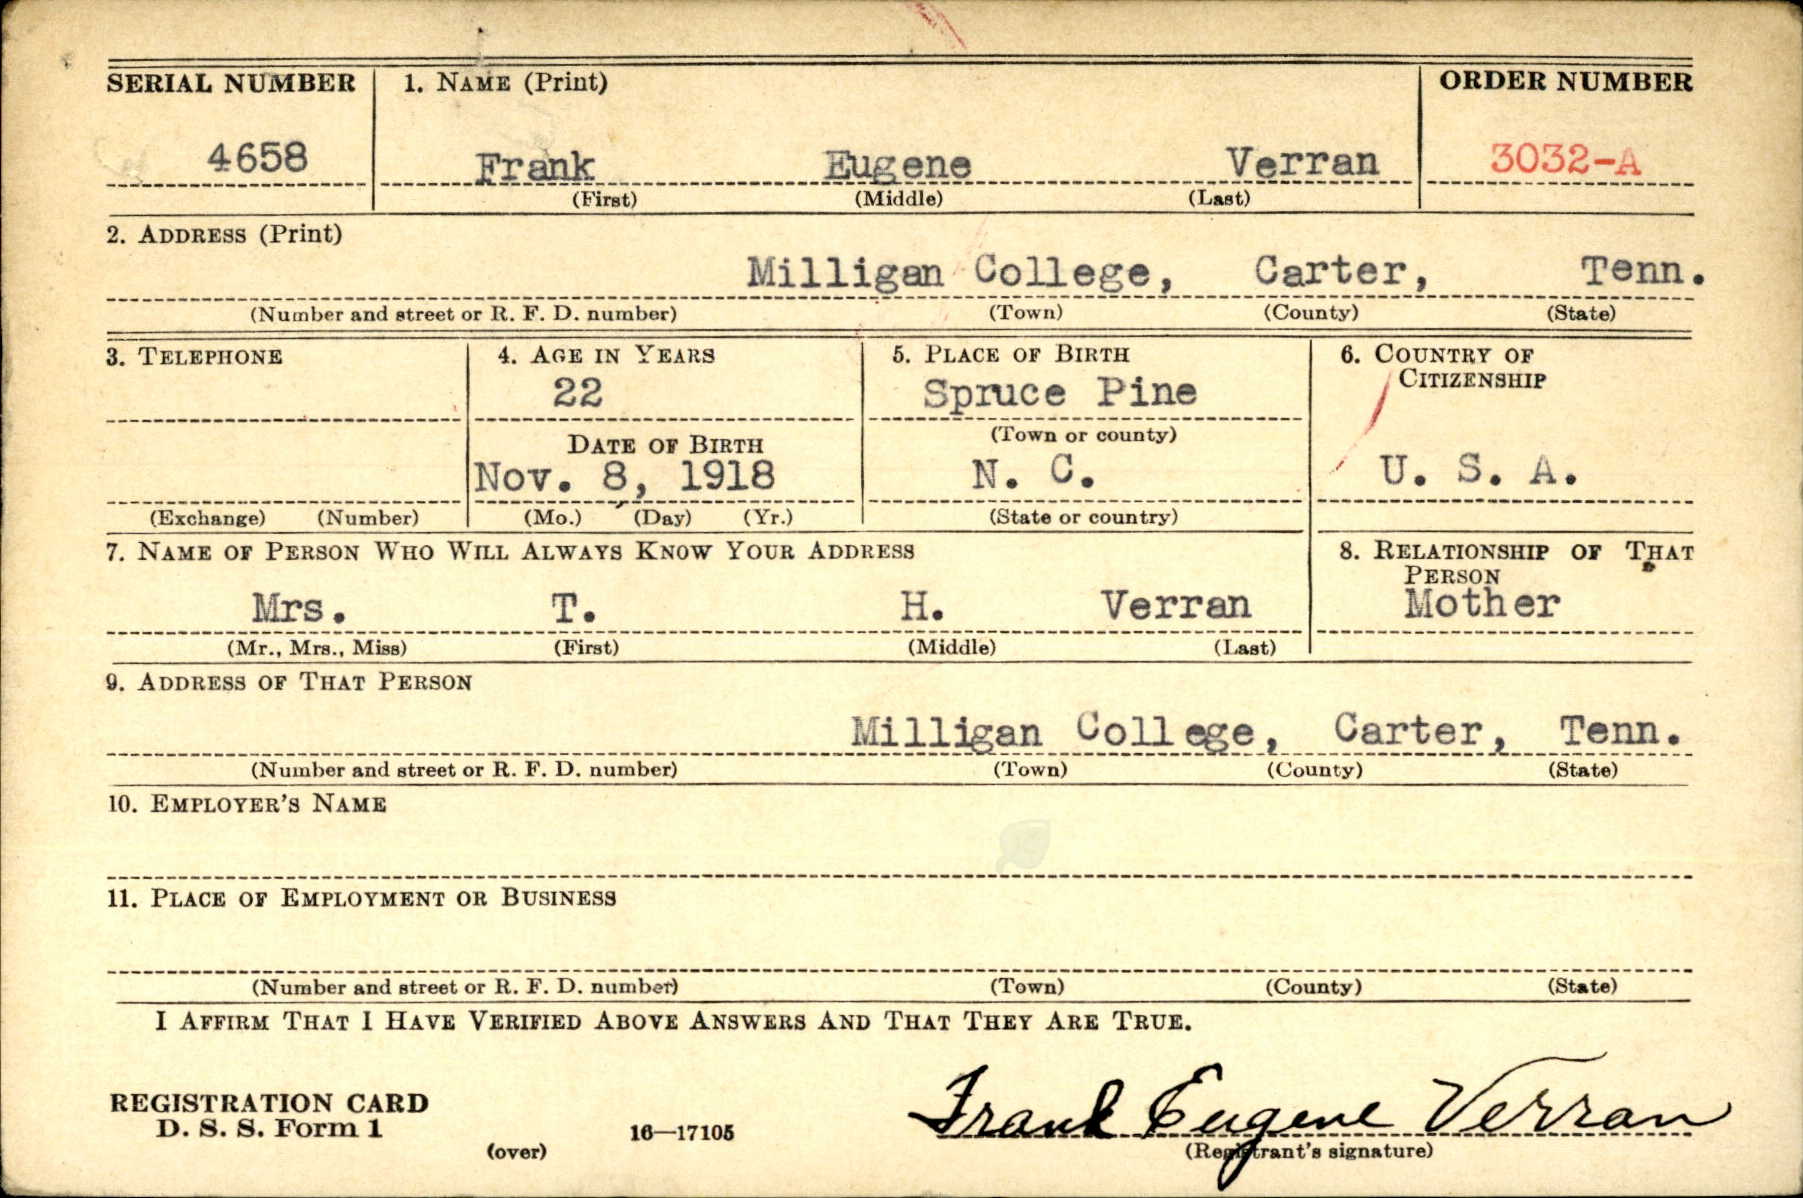 SERIAL NUMBER 1. NAME (Print) ORDER NUMBER
4658 Frank Eugene Verran 3032-A
(First) (Middle) (Last)
2. ADDRESS (Print)
Milligan College, Carter, Tenn.
(Number and street or R. F. D. number) (Town) (County) (State)
3. TELEPHONE 4. AGE IN YEARS 5. PLACE OF BIRTH 6. COUNTRY OF CITIZENSHIP
22 Spruce Pine
DATE OF BIRTH (Town or county)
Nov. 8, 1918 N. C. U. S. A.
(Exchange) (Number) (Mo.) (Day) (Yr.) (State or country)
7. NAME OF PERSON WHO WILL ALWAYS KNOW YOUR ADDRESS 8. RELATIONSHIP OF THAT PERSON
Mrs. T. H. Verran Mother
(Mr., Mrs., Miss) (First) (Middle) (Last)
9. ADDRESS OF THAT PERSON
Milligan College, Carter, Tenn.
(Number and street or R. F. D. number) (Town) (County) (State)
10. EMPLOYER'S NAME
11. PLACE OF EMPLOYMENT OR BUSINESS
(Number and street or R. F. D. number) (Town) (County) (State)
I AFFIRM THAT I HAVE VERIFIED ABOVE ANSWERS AND THAT THEY ARE TRUE.
REGISTRATION CARD
D. S. S. Form 1
(over) 16—17105 Frank Eugene Verran
(Registrant's signature)